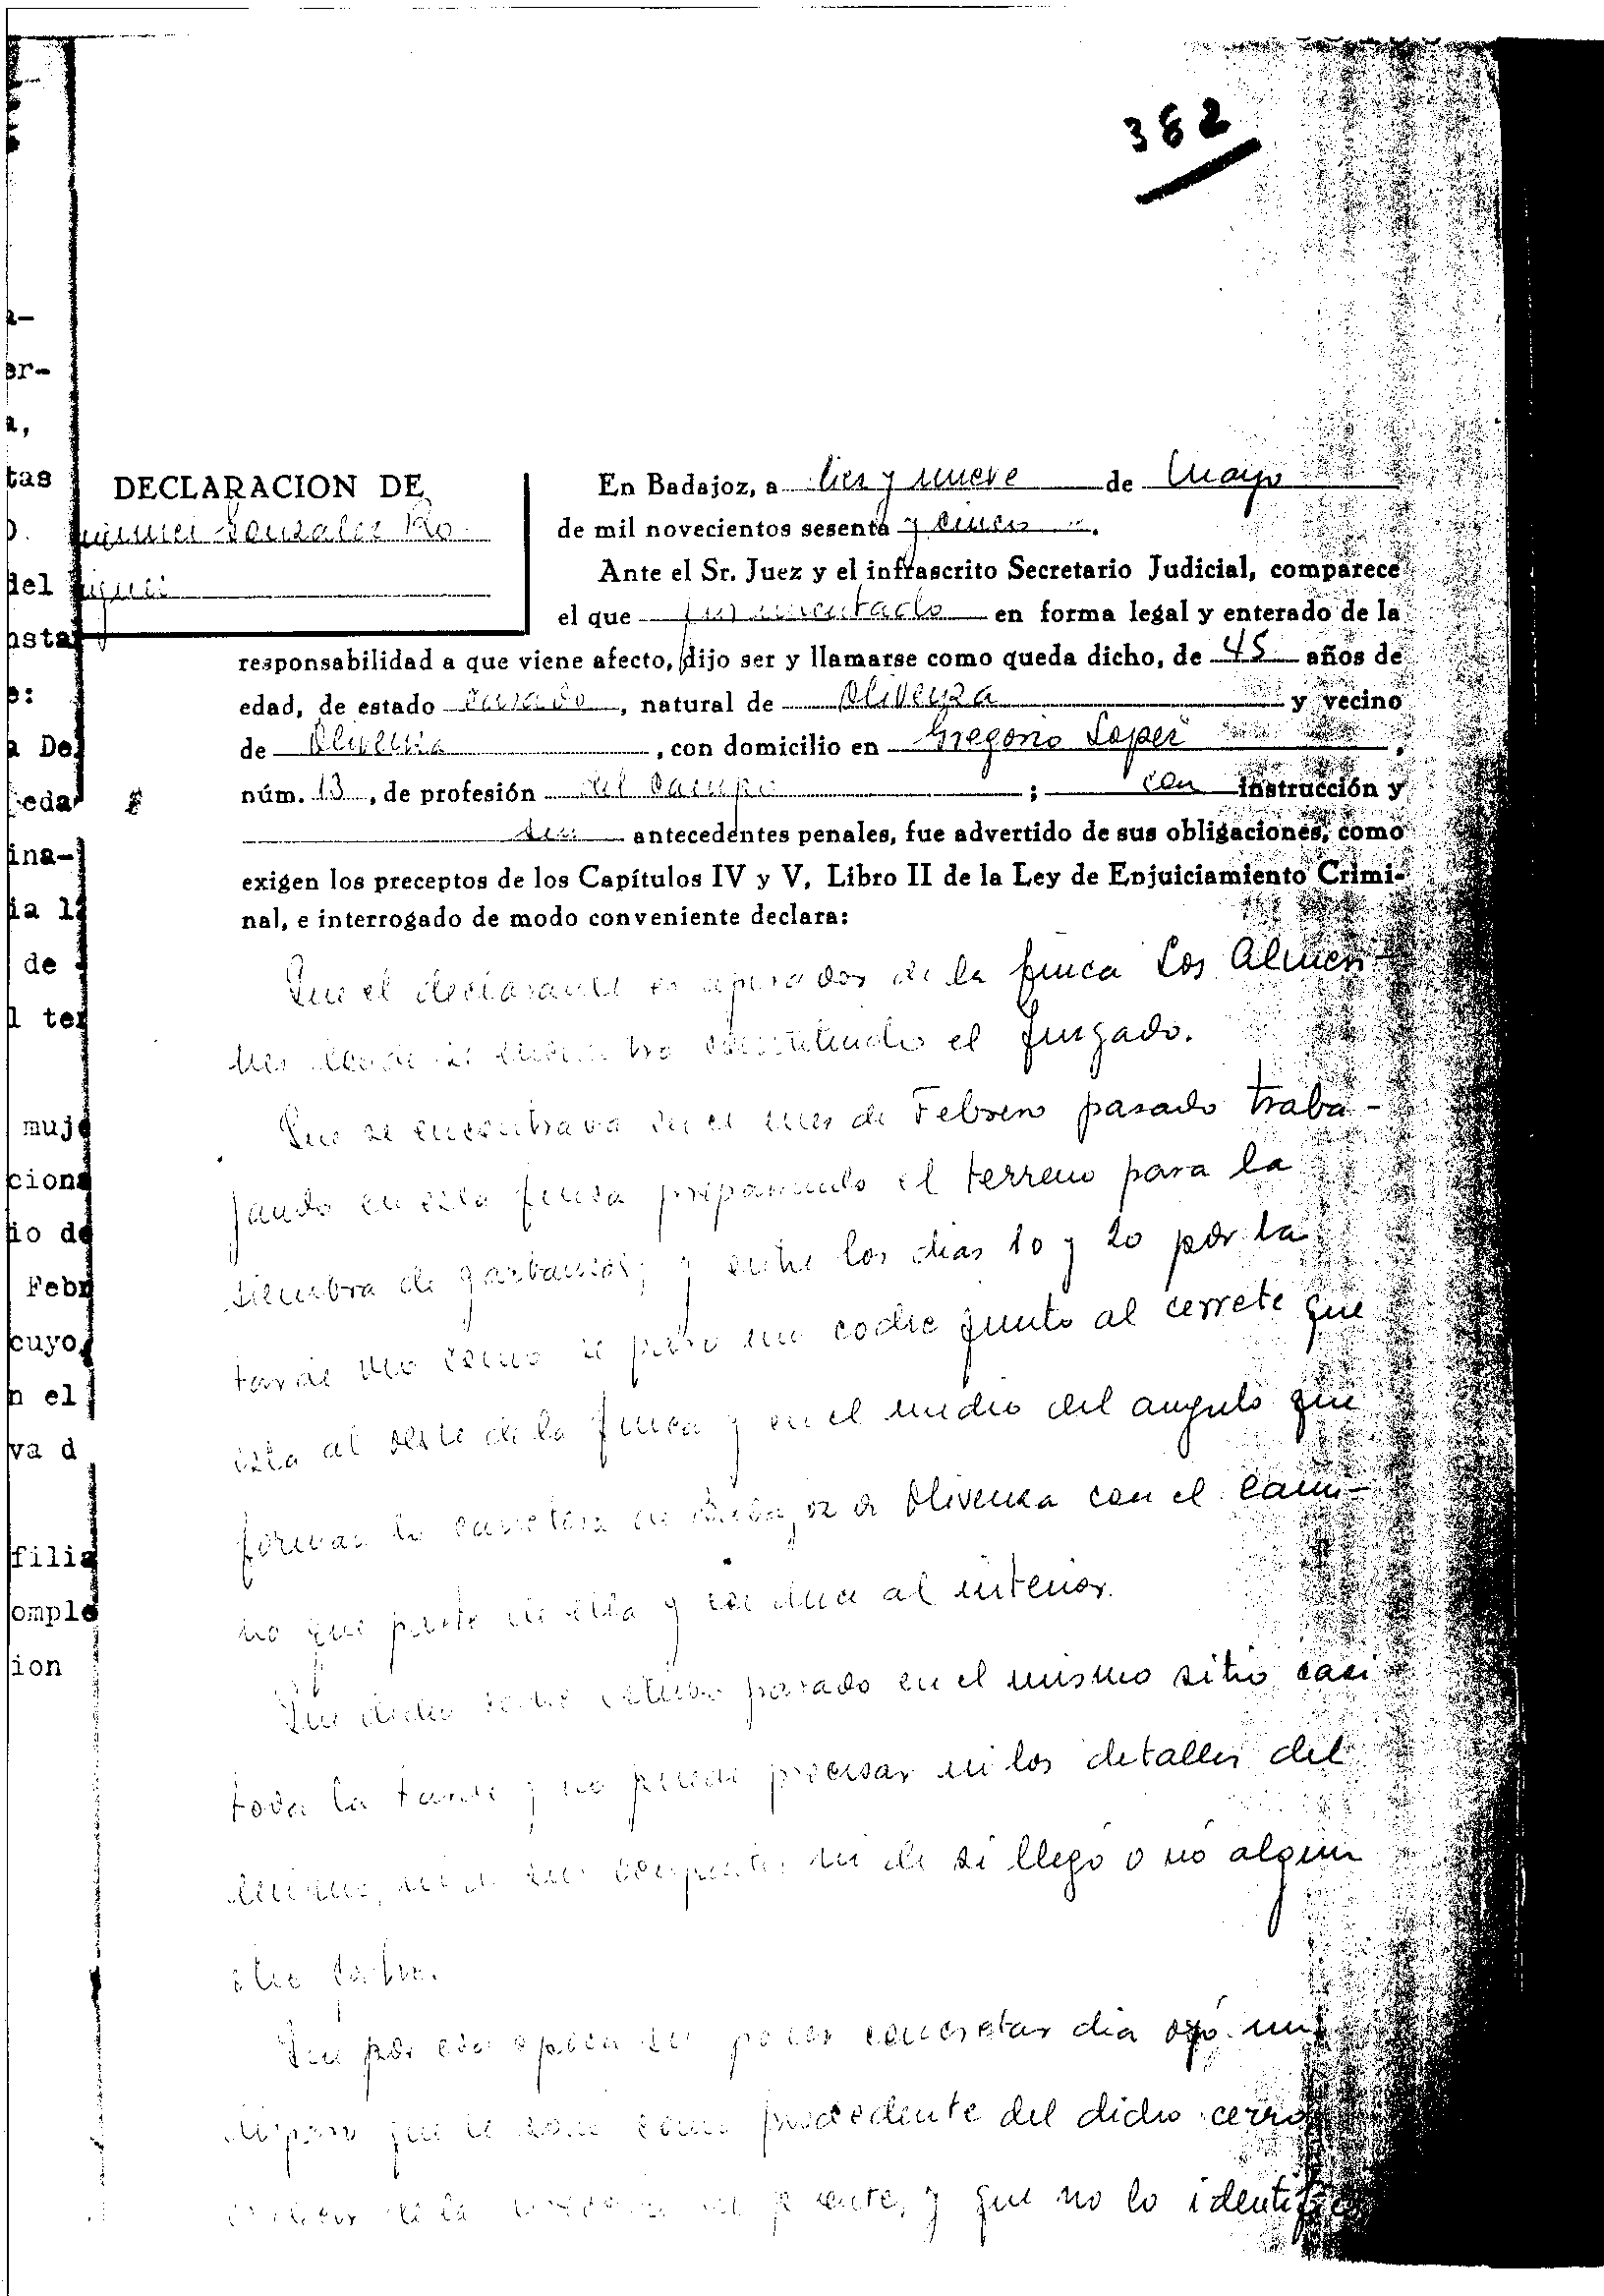 382
DECLARACION DE
Gonzalez Ro
En Badajoz, a diez y nueve de Mayo
de mil novecientos sesenta y cinco.
Ante el Sr. Juez y el infrascrito Secretario Judicial, comparece
el que juramentado en forma legal y enterado de la
responsabilidad a que viene afecto, dijo ser y llamarse como queda dicho, de 45 años de
edad, de estado casado, natural de Olivenza y vecino
de Olivenza, con domicilio en Gregorio Lopez,
núm. 13, de profesión del campo; con instrucción y
sin antecedentes penales, fue advertido de sus obligaciones, como
exigen los preceptos de los Capítulos IV y V, Libro II de la Ley de Enjuiciamiento Crimi-
nal, e interrogado de modo conveniente declara:
Que el declarante es aperador de la finca Los Almeri-
nes donde se encuentra constituido el Juzgado.
Que se encontraba en el mes de Febrero pasado traba-
jando en esta finca preparando el terreno para la
siembra de garbanzos, y entre los dias 10 y 20 por la
tarde vio como se paro un coche junto al cerrete que
esta al oeste de la finca y en el medio del angulo que
forman la carretera de Badajoz a Olivenza con el cami-
no que parte de ella y conduce al interior.
Que dicho coche estuvo parado en el mismo sitio casi
toda la tarde y no puede precisar ni los detalles del
mismo, ni de sus ocupantes ni de si llegó o nó algun
otro coche.
Que por esa epoca sin poder concretar dia oyó un
disparo que le sonó como procedente del dicho cerro
de la y que no lo identifico
tas
del
nstar
e:
a De
eda
ina-
ia la
de
l ter
muje
ciona
io de
Febr
cuyo
n el
va d
filia
omple
ion